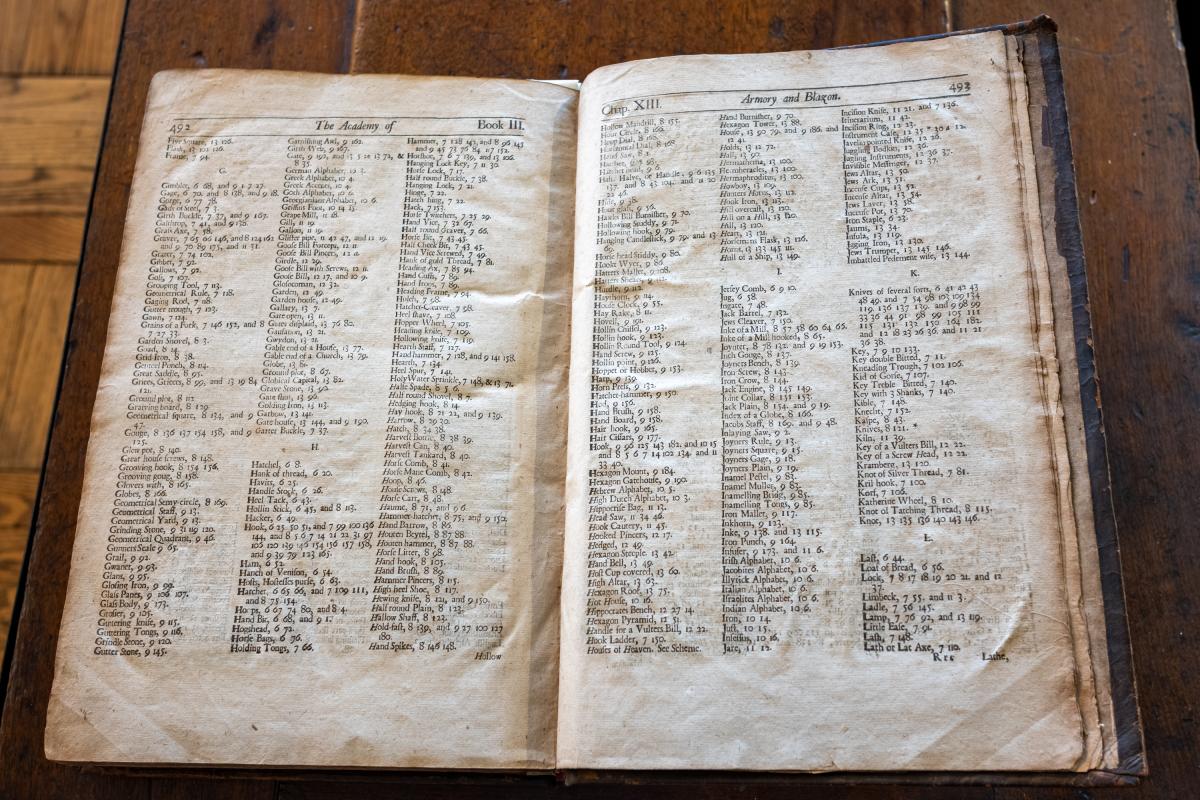 492 The Academy of Book III.
Five Square, 13 126.
Flash, 13 102 126.
Frame, 7 94.
G.
Gimblet, 6 68, and 9 1 7 27.
Gage, 6 70. and 8 138, and 9 18.
Gorge, 6 77 78.
Gads of Steel, 7 3.
Garth Buckle, 7 37, and 9 167.
Gallitrap, 7 41, and 9 138.
Grass Axe, 7 58.
Gallows, 7 92.
Goss, 7 107.
Grooping Tool, 7 113.
Geometrical Rule, 7 118.
Gaging Rod, 7 118.
Gutter trough, 7 123.
Gown, 7 124.
Grains of a Fork, 7 146 152, and 8
7 27 33.
Garden Shovel, 8 3.
Goad, 8 14.
Grid-Iron, 8 38.
Great Saddle, 8 95.
Grices, Grieces, 8 99, and 13 19 84
121.
Ground plot, 8 112.
Graining board, 8 129.
Geometrical square, 8 134, and 9
47.
Gouge, 8 136 137 154 158, and 9
125.
Glew pot, 8 140.
Great house screws, 8 148.
Grooving hook, 8 154 156.
Grooving goug, 8 158.
Glovers with, 8 165.
Globes, 8 166.
Geometrical Semy-circle, 8 169.
Geometrical Staff, 9 13.
Geometrical Yard, 9 13.
Grinding Stone, 9 31 119 120.
Geometrical Quadrant, 9 46.
Gunners Scale 9 65.
Grail, 9 92.
Gwaner, 9 93.
Glans, 9 95.
Glosing Iron, 9 99.
Glass Panes, 9 106 107.
Glass Body, 9 173.
Grosier, 9 105.
Guttering knife, 9 115.
Guttering Tongs, 9 116.
Grindle Stone, 9 120.
Gutter Stone, 9 145.
Garnishing Awl, 9 162.
Girth Web, 9 167.
Gate, 9 192, and 13 5 12 13 72, &
8 35.
German Alphabet, 10 3.
Greek Alphabet, 10 4.
Greek Accents, 10 4.
Goth Alphabet, 10 6.
Georgianian Alphabet, 10 6.
Griffins Foot, 10 14 15.
Grape Mill, 11 18.
Gill, 11 19.
Gallon, 11 19.
Glister pipe, 11 42 47, and 12 19.
Goose Bill Forceps, 12 11.
Goose Bill Pincers, 12 11.
Girdle, 12 9.
Goose Bill with Screws, 12 11.
Goose Bill, 12 17, and 10 9.
Glosocoman, 12 32.
Garden, 12 49.
Garden house, 12 49.
Gallary, 13 7.
Gate open, 13 11.
Gates displaid, 13 76 80.
Gaufatan, 13 21.
Gwydon, 13 21.
Gable end of a House, 13 77.
Gable end of a Church, 13 79.
Globe, 13 61.
Ground plot, 8 67.
Globical Capital, 13 82.
Grave Stone, 13 90.
Gate shut, 13 96.
Golding Iron, 15 113.
Garbow, 13 141.
Gate house, 13 144, and 9 190.
Garter Buckle, 7 37.
H.
Hatchel, 6 8.
Hank of thread, 6 20.
Havits, 6 25.
Handle Stock, 6 26.
Heel Tack, 6 43.
Hollin Stick, 6 45, and 8 113.
Hacker, 6 49.
Hook, 6 25 50 51, and 7 99 100 136
144, and 8 5 6 7 14 21 22 31 97
106 120 139 146 154 156 157 158,
and 9 39 79 123 165.
Ham, 6 52.
Hanch of Venison, 6 54.
Hosts, Hostesses purse, 6 63.
Hatchet, 6 65 66, and 7 109 111,
and 8 78 154.
Hoops, 6 67 74 80, and 8 4.
Hand Bit, 6 68, and 9 1.
Hogshead, 6 72.
Horse Bags, 6 76.
Holding Tongs, 7 66.
Hammer, 7 128 141, and 8 96 145
and 9 45 73 76 84 117 152.
Horshoe, 7 6 7 139, and 13 106.
Hanging Lock Key, 7 11 30.
Horse Lock, 7 17.
Half round Buckle, 7 38.
Hanging Lock, 7 21.
Hinge, 7 22.
Hatch hing, 7 22.
Hack, 7 153.
Horse Twitchers, 7 25 29.
Hand Vice, 7 32 67.
Half round Graver, 7 66.
Horse Bit, 7 43.
Half Cheek Bit, 7 43 45.
Hand Vice Screwed, 7 49.
Hank of gold Thread, 7 81.
Heading Ax, 7 85 94.
Hand Cuffs, 7 89.
Hand Irons, 7 89.
Heading Frame, 7 94.
Hulch, 7 98.
Hatchet-Cleaver, 7 98.
Heel shave, 7 108.
Hopper Wheel, 7 105.
Heading knife, 7 109.
Hollowing knife, 7 119.
Hearth Staff, 7 127.
Hand hammer, 7 128, and 9 141 158.
Hearth, 7 134
Heel Spur, 7 141.
Holy Water Sprinkle, 7 148, & 13 71.
Halfe Spade, 8 5 6.
Half round Shovel, 8 7.
Hedging hook, 8 14.
Hay hook, 8 21 22, and 9 139.
Harrow, 8 29 30.
Hatch, 8 34 38.
Harvest Bottle, 8 38 39.
Harvest Can, 8 40.
Harvest Tankard, 8 40.
Horse Comb, 8 41.
Horse Mane Comb, 8 42.
Hoop, 8 46.
House Screws, 8 48.
Horse Carr, 8 48.
Haume, 8 71, and 9 6.
Hammer-hatchet, 8 75, and 9 150.
Hand Barrow, 8 86.
Houten Beytel, 8 87 88.
Houten hammer, 8 87 88.
Horse Litter, 8 98.
Hand hook, 8 105.
Hand Brush, 8 89.
Hammer Pincers, 8 115.
High heel Shoe, 8 117.
Hewing knife, 8 121, and 9 150.
Half round Plain, 8 123.
Hallow Shaff, 8 122.
Hold-fast, 8 139, and 9 27 100 127
180.
Hand Spikes, 8 146 148.
Hollow
Chap. XIII. Armory and Blazon. 493
Hollow Mandrill, 8 155.
Hour Circle, 8 166.
Hoop Dial, 8 168.
Horizontal Dial, 8 168.
Head Saw, 8 4.
Haft, Halve, or Handle, 9 6 135
137. and 8 43 104. and 11 20
22 46.
Huse, 9 38.
Hour glass, 9 56.
Hawks Bill Burnisher, 9 70.
Hollowing Studdy, 9 71.
Hollowing hook, 9 79.
Hanging Candlestick, 9 79. and 13
69.
Horse head Stiddy, 9 80.
Hooke Wyer, 9 86.
Hatters Mallet, 9 108.
Hatters Shears, 9 112.
Hindle, 9 112.
Haythorn, 9 114.
House Clock, 9 55.
Hay Rake, 8 11.
Hovell, 9 191.
Hollin Chissel, 9 123.
Hollin hook, 9 123.
Hollin Round Tool, 9 124.
Hand Screw, 9 125.
Hollin point, 9 126.
Hoppet or Hobbet, 9 153.
Harp, 9 139.
Horn Press, 9 132.
Hatchet-hammer, 9 150.
Hod, 9 156.
Hand Brush, 9 158.
Hand Board, 9 158.
Hair hook, 9 165.
Hair Cissars, 9 177.
Hook, 9 96 125 143 182, and 10 15
and 8 5 6 7 14 102 134. and 11
33 40.
Hexagon Mount, 9 184.
Hexagon Gatehouse, 9 190.
Hebrew Alphabet, 10 5.
High Dutch Alphabet, 10 3.
Hippocrise Bag, 11 13.
Head Saw, 11 34 46.
Hook Cautery, 11 45.
Hooked Pincers, 12 17.
Hedged, 12 49.
Hexagon Steeple, 13 42.
Hand Bell, 13 49.
Host Cup covered, 13 60.
High Altar, 13 63.
Hexagon Roof, 13 75.
Hot House, 10 16.
Hippocrates Bench, 12 27 14.
Hexagon Pyramid, 12 51.
Handle for a Vulters Bill, 12 22.
Hook Ladder, 7 150.
Houses of Heaven. See Scheme.
Hand Burnisher, 9 70.
Hexagon Tower, 13 88.
House, 13 90 79, and 9 186, and
12 41.
Holds, 13 72.
Hall, 13 92.
Hermathrena, 13 100.
Hermheracles, 13 100.
Hermaphroditus, 13 100.
Hawboy, 13 109.
Hunters Horns, 13 112.
Hook Iron, 13 113.
Hill overcast, 13 120.
Hill on a Hill, 13 120.
Hill, 13 120.
Heart, 13 121.
Horsemens Flask, 13 126.
Horns, 13 133 145.
Hull of a Ship, 13 149.
I.
Jersey Comb, 6 9 10.
Jug, 6 58.
Ingate, 7 48.
Jack Barrel, 7 132.
Jews Cleaver, 7 150.
Inke of a Mill, 8 57 58 60 64 65.
Inke of a Mill hooked, 8 65.
Joynter, 8 78 132. and 9 19 153.
Inch Gouge, 9 137.
Joyners Bench, 8 139.
Iron Screw, 8 143.
Iron Crow, 8 144.
Jack Engine, 8 145 149.
Joint Collar, 8 151 153.
Jack Plain, 8 154. and 9 19.
Index of a Globe, 8 166.
Jacobs Staff, 8 169. and 9 48.
Inlaying Saw, 9 2.
Joyners Rule, 9 13.
Joyners Square, 9 15.
Joyners Gage, 9 18.
Joyners Plain, 9 19.
Inamel Pestel, 9 83.
Inamel Muller, 9 83.
Inamelling Bridg, 9 85.
Inamelling Tongs, 9 85.
Iron Maller, 9 117.
Inkhorn, 9 123.
Inke, 9 138. and 13 115.
Iron Punch, 9 164.
Infuser, 9 173. and 11 6.
Irish Alphabet, 10 6.
Jacobites Alphabet, 10 6.
Illyrick Alphabet, 10 6.
Italian Alphabet, 10 6.
Israelites Alphabet, 10 6.
Indian Alphabet, 10 6.
Iron, 10 14.
Just, 10 15.
Infestus, 10 16.
Jare, 11 12.
Incision Knife, 11 21. and 7 136.
Itinerarium, 11 42.
Incision Ring, 12 23.
Instrument Case, 12 35 36 4 12.
Javelin pointed Knife, 12 26.
Jugling Bodkin, 12 36.
Jugling Instruments, 12 36 37.
Invisible Messenger, 12 37.
Jews Altar, 13 50.
Jews Ark, 13 51.
Incense Cups, 13 52.
Incense Altar, 13 54.
Jews Laver, 13 58.
Incense Pot, 13 70.
Iron Staple, 6 23.
Jaums, 13 34.
Infula, 13 119.
Jaging Iron, 13 130.
Jews Trumpet, 13 145 146.
Imbattled Pedement wise, 13 144.
K.
Knives of several sorts, 6 41 42 43
48 49. and 7 54 98 103 109 134
119 136 137 139. and 9 98 99
33 36 44 91 98 99 105 111
115 131 132 150 164 182.
and 12 18 23 26 36. and 11 21
36 38.
Key, 7 9 10 133.
Key double Bitted, 7 11.
Kneading Trough, 7 102 106.
Kid of Gorse, 7 107.
Key Treble Bitted, 7 140.
Key with 3 Shanks, 7 140.
Kible, 7 148.
Knecht, 7 152.
Kaspe, 8 43.
Knives, 8 121.
Kiln, 11 39.
Key of a Vulters Bill, 12 22.
Key of a Screw Head, 12 22.
Kramberg, 13 120.
Knot of Silver Thread, 7 81.
Kril hook, 7 100.
Korf, 7 106.
Katherine Wheel, 8 10.
Knot of Tatching Thread, 8 115.
Knot, 13 135 136 140 143 146.
L.
Last, 6 44.
Loaf of Bread, 6 56.
Lock, 7 8 17 18 19 20 21. and 12
37.
Limbeck, 7 55. and 11 3.
Ladle, 7 56 145.
Lamp, 7 76 92, and 13 119.
Little Ease, 7 91.
Lash, 7 148.
Lath or Lat Axe, 7 110.
Rrr Lathe,